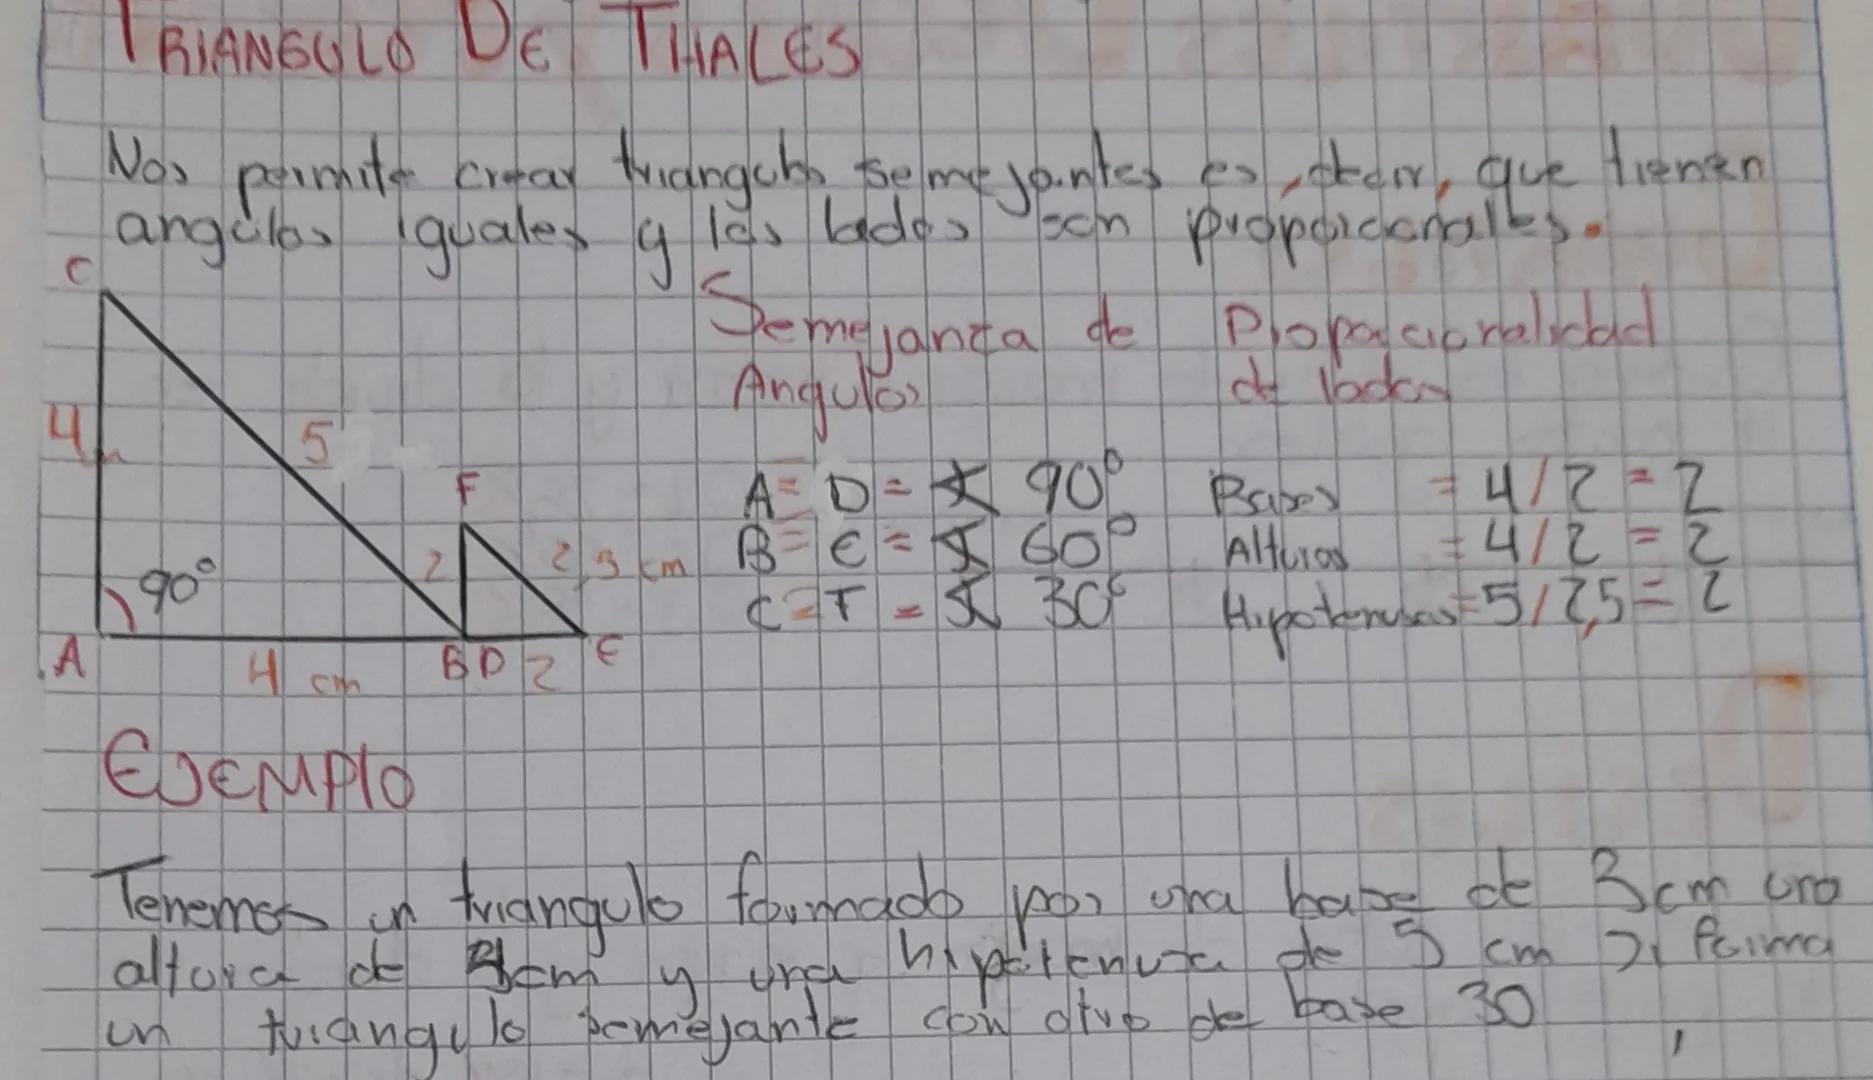 TRIANGULO DE THALES
Nos permite crear triangulos semejantes es, decir, que tienen
angulos iguales y los lados son proporcionales.
Semejanza de Angulos
Proporcionalidad de lados
C
4
5
F
2
2,5 cm
90°
A
4 cm
B D 2 E
A = D = ∡ 90°
B = E = ∡ 60°
C = F = ∡ 30°
Bases = 4/2 = 2
Alturas = 4/2 = 2
Hipotenusas = 5/2,5 = 2
EJEMPLO
Tenemos un triangulo formado por una base de 3cm una
altura de 4cm y una hipotenusa de 5 cm si forma
un triangulo semejante con otro de base 30